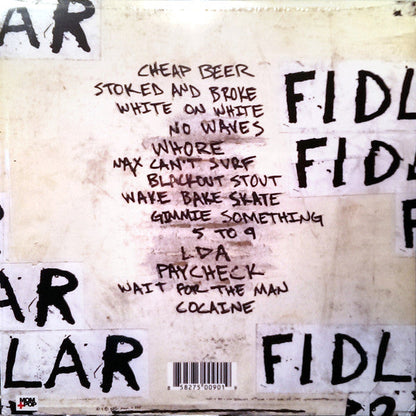 LAR
CHEAP BEER
STOKED AND BROKE
WHITE ON WHITE
NO WAVES
WHORE
MAX CAN'T SURF
BLACKOUT STOUT
WAKE BAKE SKATE
GIMMIE SOMETHING
5 TO 9
LDA
PAYCHECK
WAIT FOR THE MAN
COCAINE
FIDL
FID
F
AR
LAR
FIDL
MOM
+POP
8 58275 00901